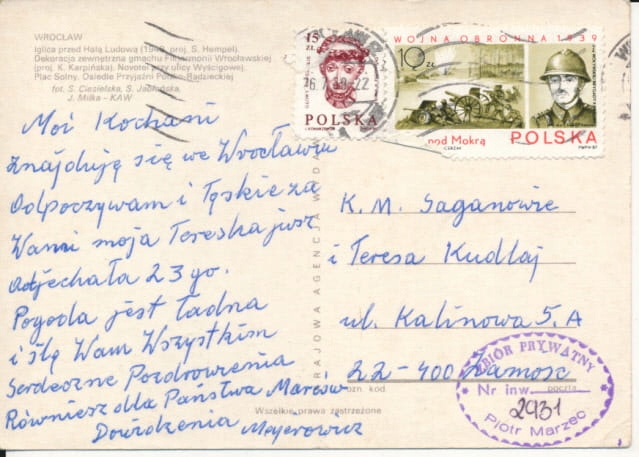 WROCŁAW
Iglica przed Halą Ludową (1948, proj. S. Hempel).
Dekoracja zewnętrzna gmachu Filharmonii Wrocławskiej
(proj. K. Karpińska). Novotel przy ulicy Wyścigowej.
Plac Solny. Osiedle Przyjaźni Polsko-Radzieckiej
fot. S. Ciesielska, S. Jabłońska,
J. Milka - KAW
Moi Kochani
Znajduję się we Wrocławiu
Odpoczywam i Tęskię za
Wami moja Tereska jusz
Odjechała 23 go.
Pogoda jest ładna
i ślę Wam Wszystkim
Serdeczne Pozdrowienia
Również dla Państwa Marców
Dowidzenia Majerowicz
Wszelkie prawa zastrzeżone
KRAJOWA AGENCJA WYDA
15 zł
POLSKA
WOJNA OBRONNA 1939
10 zł
pod Mokrą
POLSKA
K. M. Saganowie
i Teresa Kudłaj
ul. Kalinowa 5, A
22-400 Zamość
ozn. kod
poczta
ZBIÓR PRYWATNY
Nr inw.
2931
Piotr Marzec